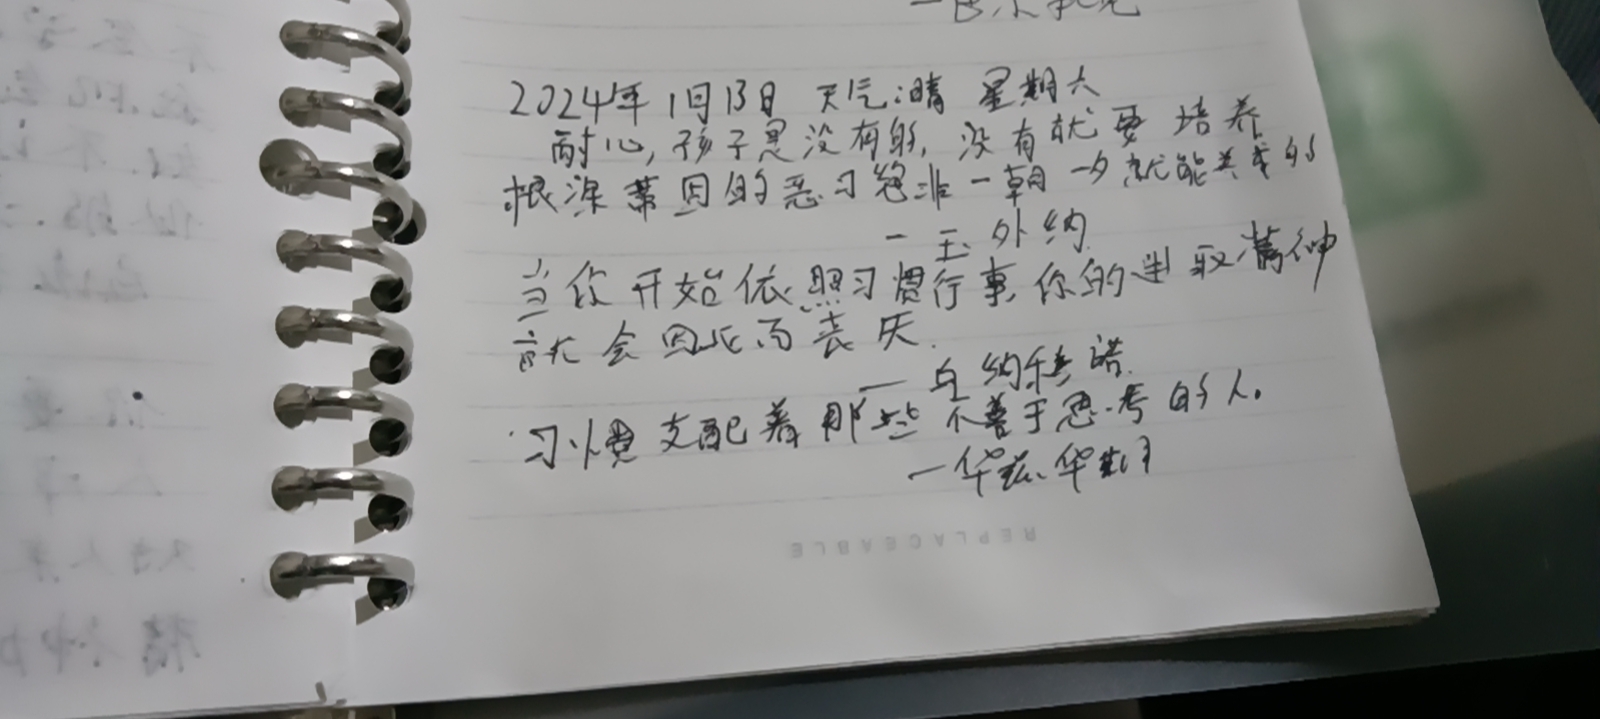 2024年1月13日 天气:晴 星期六
耐心,孩子是没有的,没有就要培养
根深蒂固的恶习绝非一朝一夕就能养成的
一 玉外纳
当你开始依照习惯行事,你的进取精神
就会因此而丧失.
— 乌纳穆诺.
习惯支配着那些不善于思考的人。
一华兹华斯
REPLACEABLE